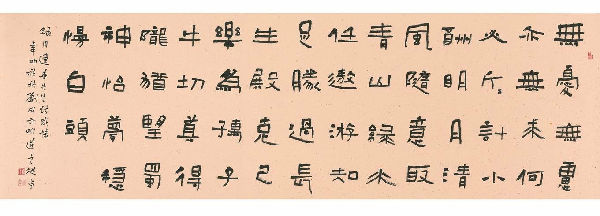 無憂無慮
亦無求何
必斤〻計小
酬明月清
風隨意取
青山綠水
任遨游知
足勝過長
生殿克己
樂為孺子
牛切莫得
隴猶望蜀
神怡夢穩
慢白頭